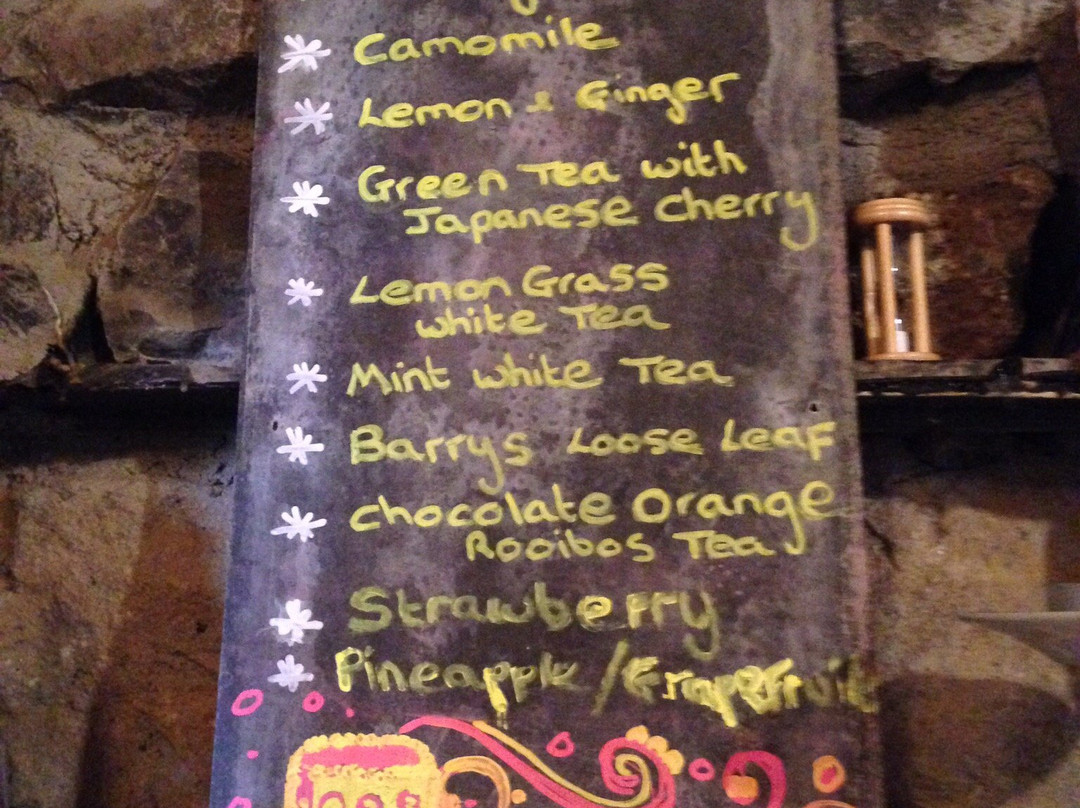 * Camomile
* Lemon & Ginger
* Green Tea with
Japanese Cherry
* Lemon Grass
white Tea
* Mint white Tea
* Barrys Loose Leaf
* Chocolate Orange
Rooibos Tea
* Strawberry
* Pineapple / Grapefruit